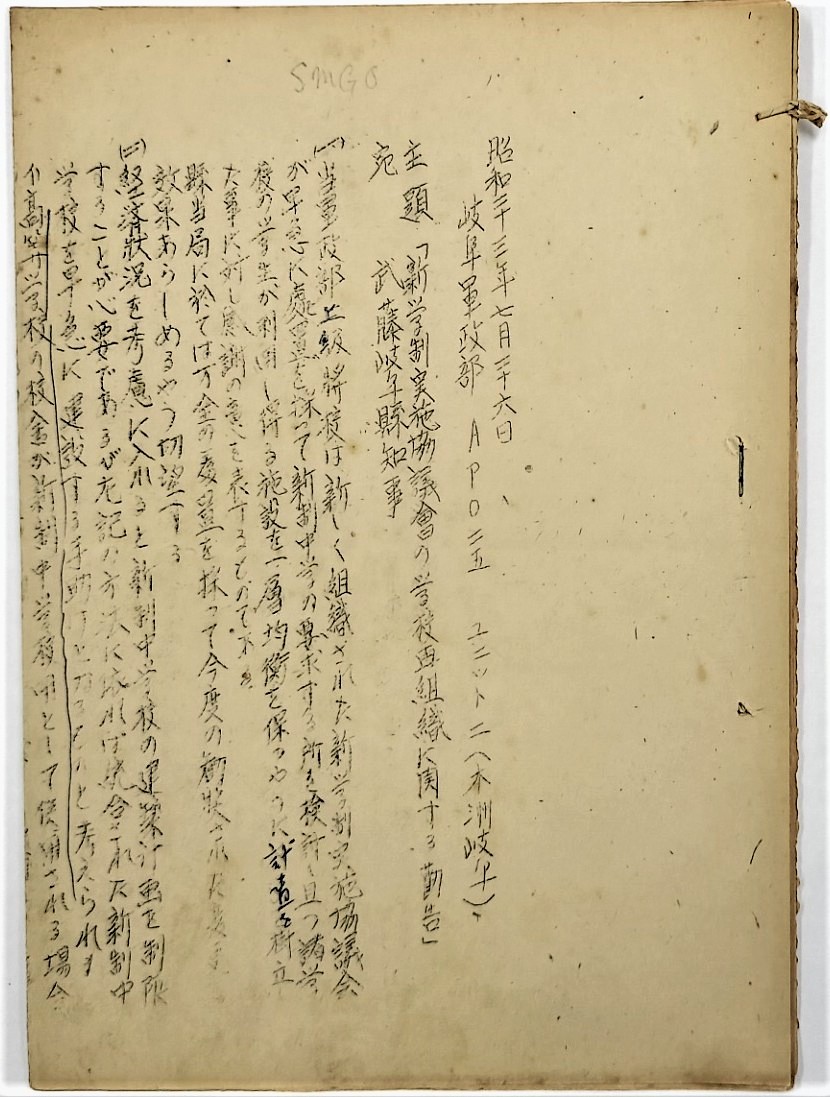 SMGO
昭和二十三年七月二十六日
岐阜軍政部 APO 二五 ユニット二(本洲岐阜)
主題「新学制実施協議會の学校再組織に関する勧告」
宛 武藤岐阜縣知事
(一)当軍政部上級将校は新しく組織された新学制実施協議会
が早急に處置を採って新制中学の要求する所を検討し且つ諸学
校の学生が利用し得る施設を一層均衡を保つやうに計畫を樹立
た事に対し感謝の意を表するものである
縣当局に於ては万全の處置を採って今度の勧
効果あらしめるやう切望する
(二)経済狀況を考慮に入れると新制中学校の建築計画を制限
することが必要であるが左記の方法に依れば統合された新制中
学校を早急に建設する手助けとなるものと考えられる
(イ)高等学校の校舎が新制中学校用として使用される場合